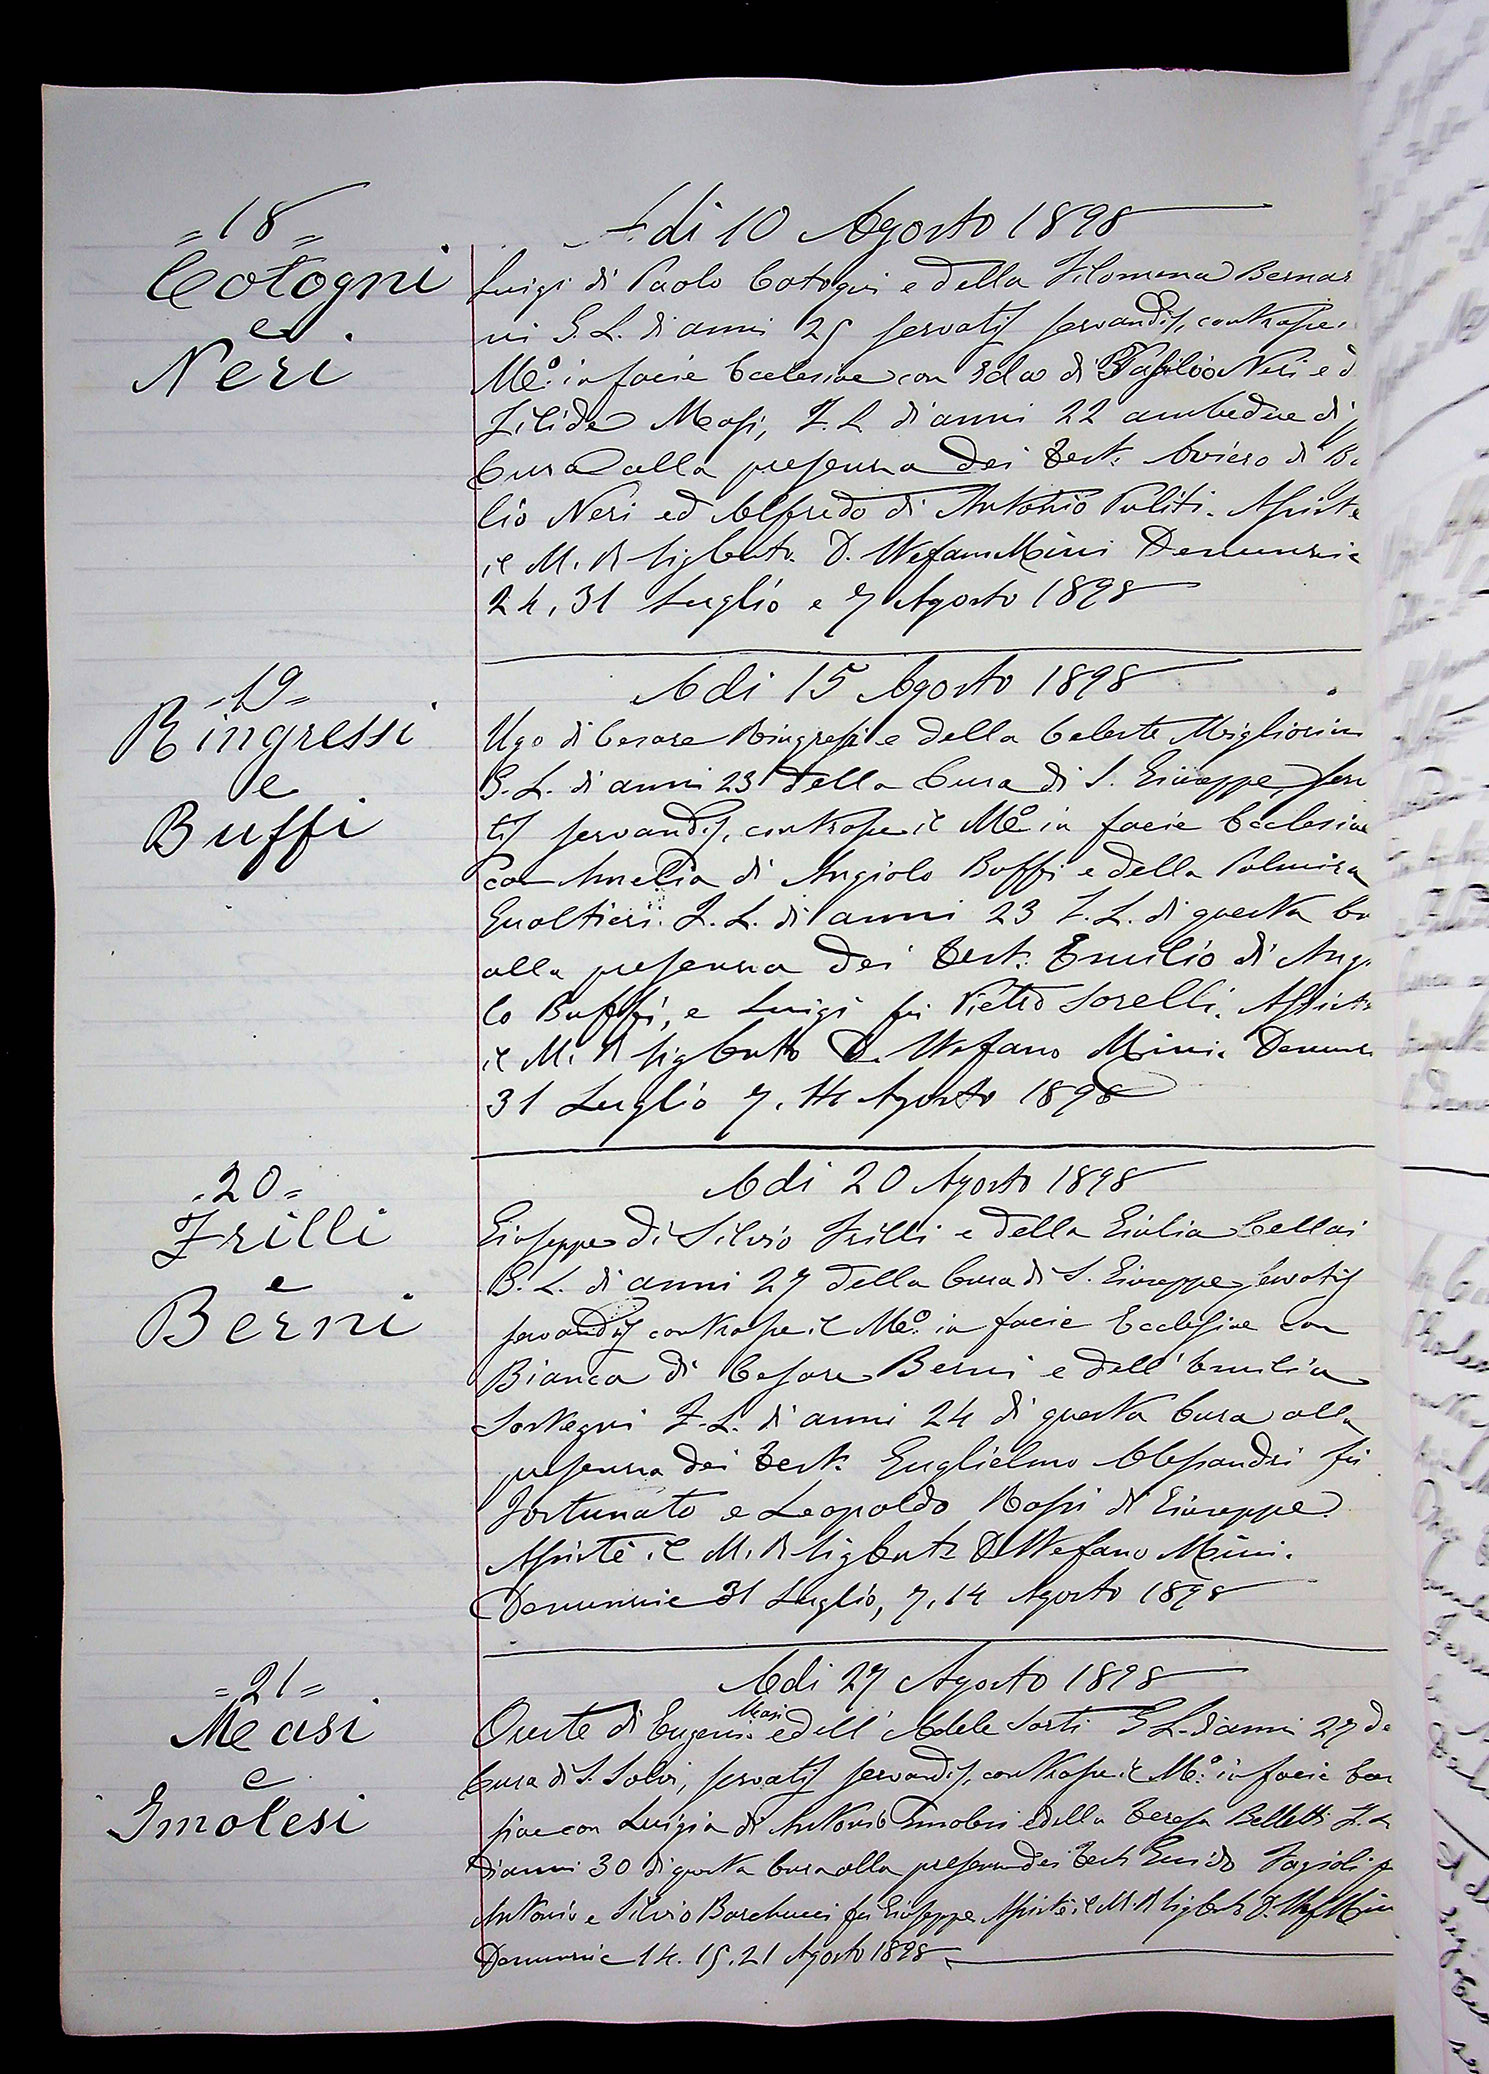 =18=
Cotogni
e
Neri
Adi 10 Agosto 1898
Luigi di Paolo Cotogni e della Filomena Bernar
ni G. L. di anni 25 servatis servandis, contrasse
Mo: in facie Ecclesiae con Ida di Basilio Neri e d
Filide Masi, F. L. di anni 22 ambedue di
Cura alla presenza dei Test: Aviero di Ba
lio Neri ed Alfredo di Antonio Puliti. Assiste
il M. R. Sig Curato D. Stefano Mini Denunzie
24, 31 Luglio e 7 Agosto 1898
-19=
Ringressi
e
Buffi
Adi 15 Agosto 1898
Ugo di Cesare Ringressi e della Celeste Migliorin
G. L. di anni 23 della Cura di S. Giuseppe, serv
tis servandis, contrasse il Mo in facie Ecclesiae
con Amelia di Angiolo Buffi e della Palmira
Gualtieri. F. L. di anni 23 F. L. di questa Cu
alla presenza dei Test: Emilio di Angi
lo Buffi, e Luigi fu Pietro Sorelli. Assiste
il M. R. Sig Curato D. Stefano Mini. Denunz
31 Luglio 7, 14 Agosto 1898
-20=
Frilli
e
Berni
Adi 20 Agosto 1898
Giuseppe di Silvio Frilli e della Giulia Cellai
G. L. di anni 27 della Cura di S. Giuseppe servatis
servandis contrasse il Mo: in facie Ecclesiae con
Bianca di Cesare Berni e dell' Emilia
Sostegni F. L. di anni 24 di questa Cura alla
presenza dei Test: Guglielmo Alessandri fu
Fortunato e Leopoldo Rossi di Giuseppe
Assistè il M. R. Sig Curato D Stefano Mini.
Denunzie 31 Luglio, 7, 14 Agosto 1898
=21=
Masi
e
Imolesi
Adi 27 Agosto 1898
Masi
Oreste di Eugenio e dell' Adele Sarti G L. di anni 27 de
Cura di S. Salvi, servatis servandis, contrasse il Mo: in facie Eccl
siae con Luigia di Antonio Imolesi e della Teresa Belletti F. L
di anni 30 di questa Cura alla presenza dei Test Guido Fagioli f
Antonio e Silvio Barchucci fu Giuseppe Assistè il M. R. Sig Curato D. Stef Mini
Denunzie 14. 15. 21 Agosto 1898